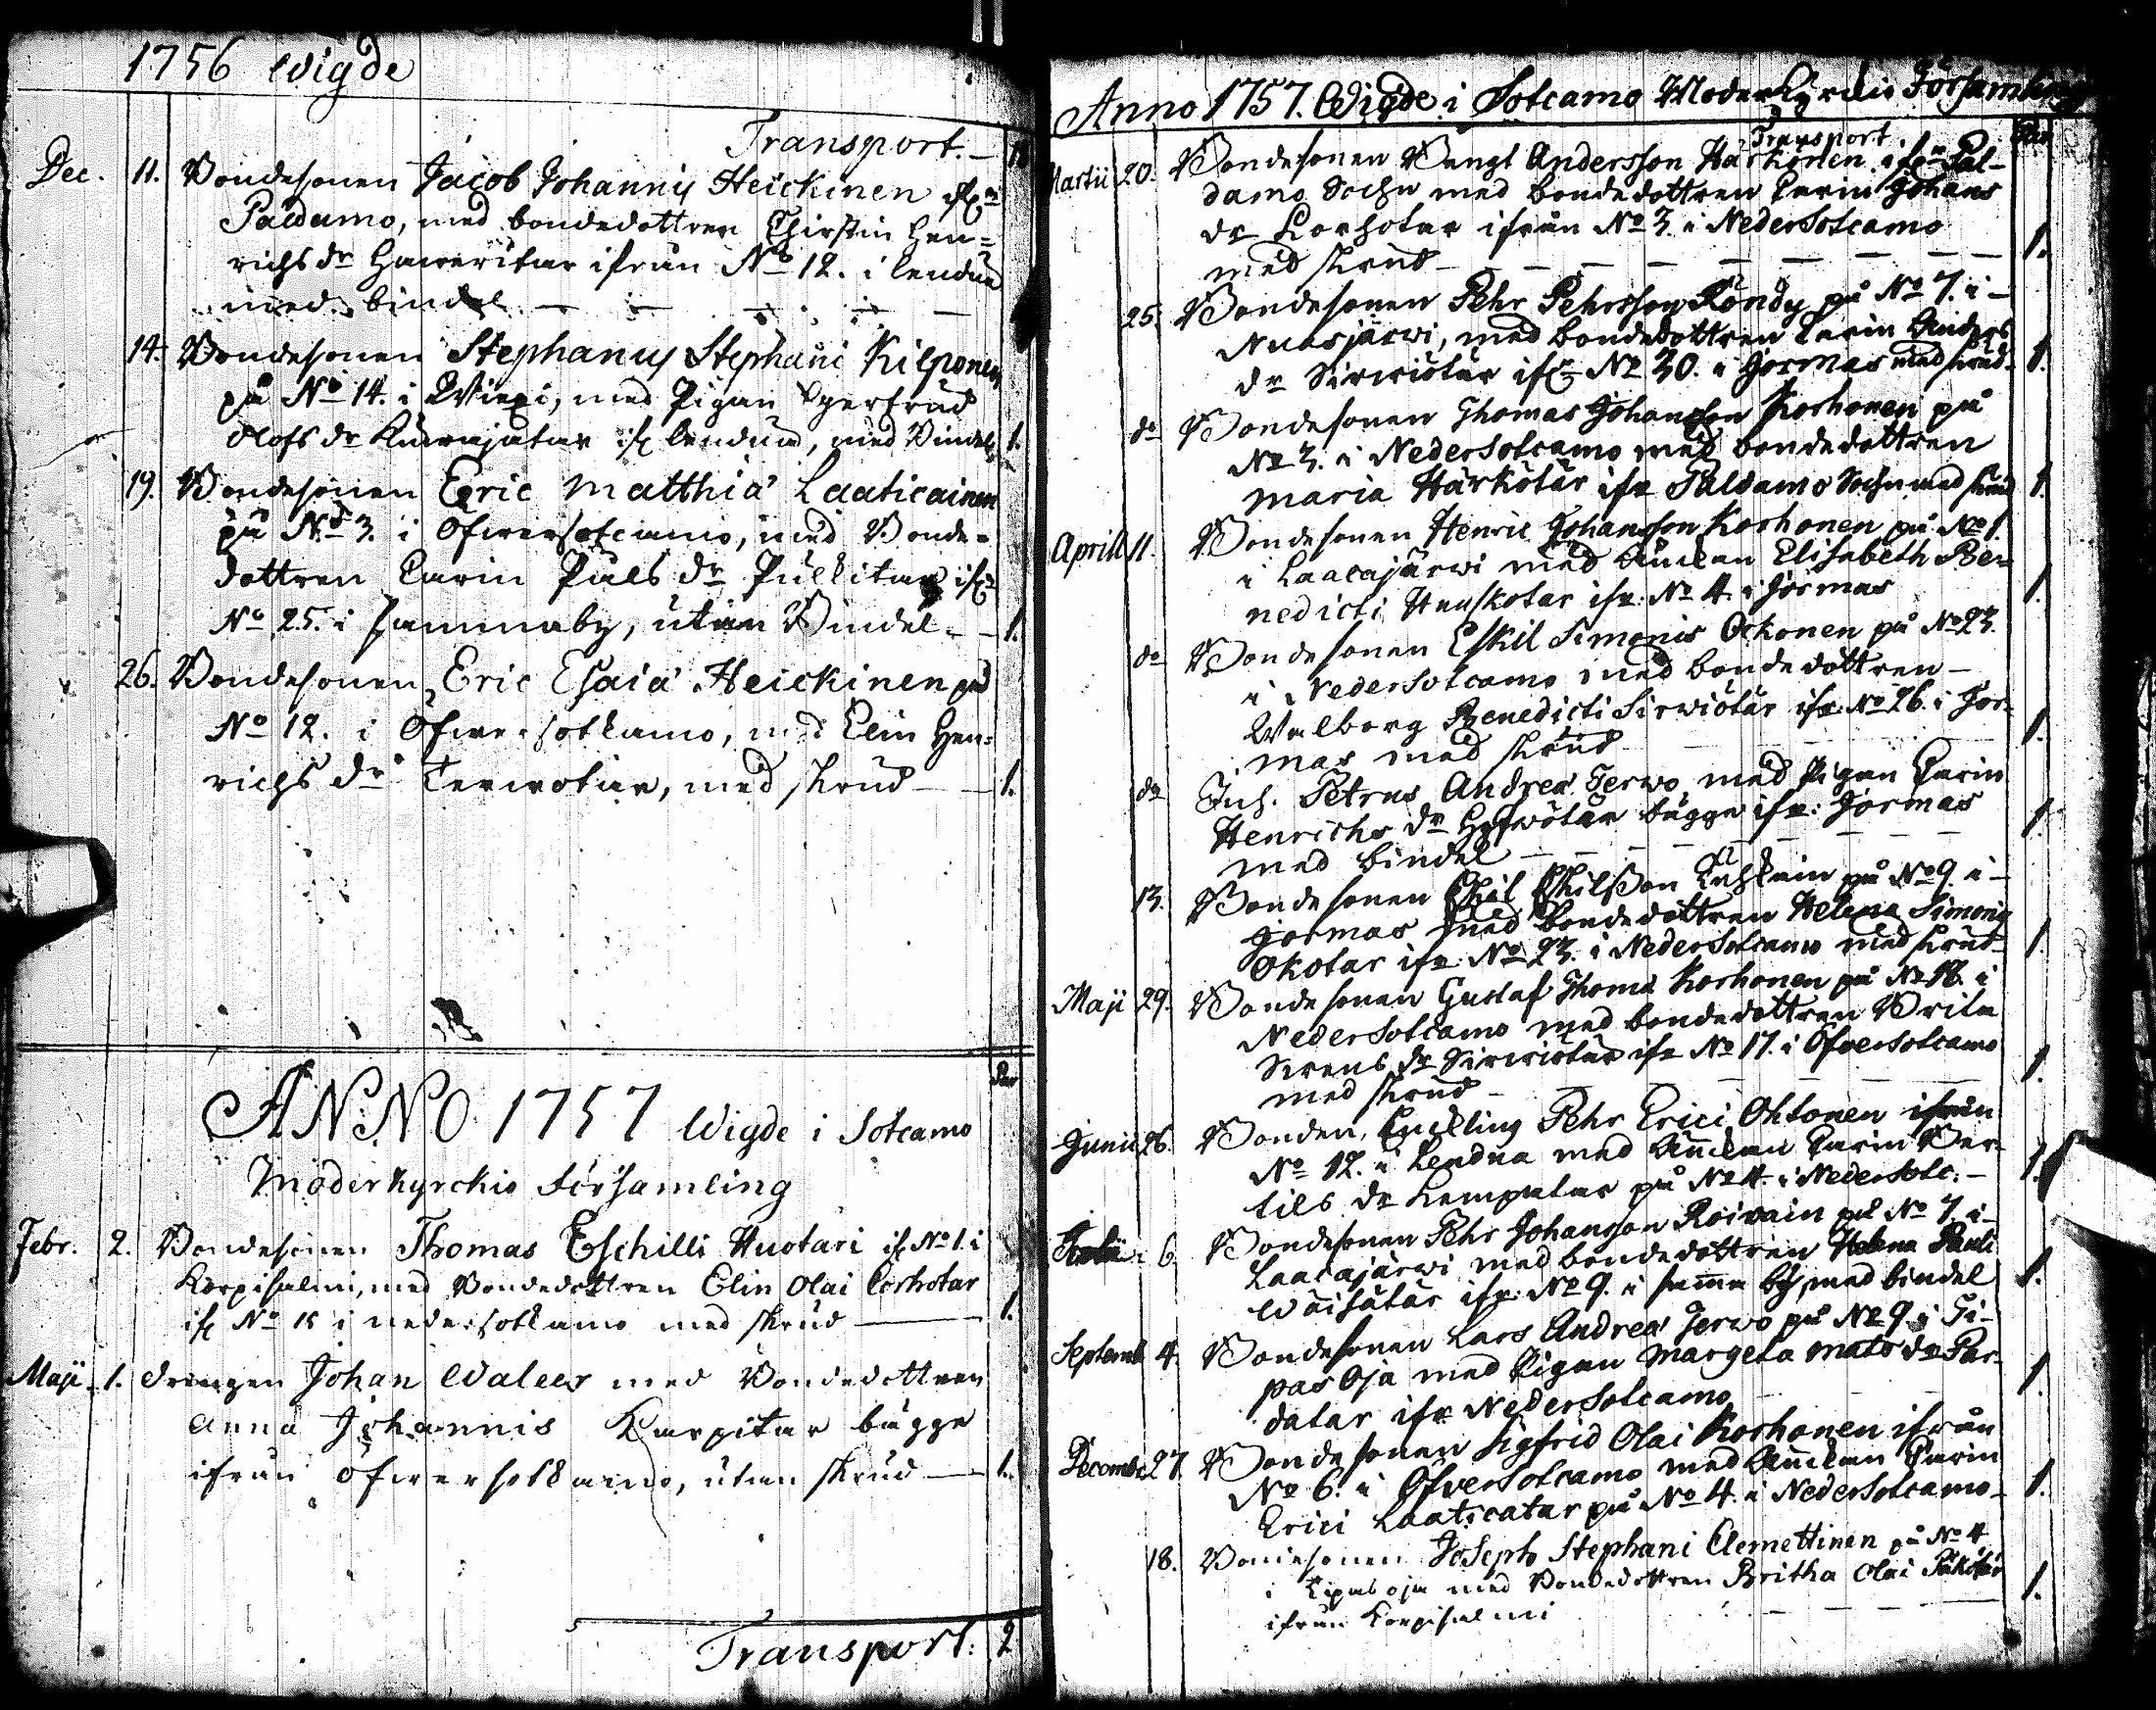 1756 Wigde
Transport. —
Dec. 11. Bondesonen Jacob Johannis Heickinen ifrån
Paldamo, med bondedottren Chirstin Hen=
richs dr Haweritar ifrån No 12. i Lendua
med bindel
14. Bondesonen Stephanus Stephani Kilponen
på No 14. i Wiexi, med Pigan Gertrud
Olofs dr Kurajatar ifr Lendua, med Bindel, 1.
19. Bondesonen Eric Matthiæ Laaticainen
på No 3. i Öfwersotcamo, med Bonde-
dottren Carin Påls dr Pulkitar ifrn
No 25. i samma by, utan Bindel - - 1.
26. Bondesonen Eric Esaiæ Heickinen på
No 12. i Öfwersotkamo, med Elin Hen=
richs dr Terwotar, med skrud — 1.
Par
ANNO 1757 Wigde i Sotcamo
Moderkyrckio Församling
Febr. 2. Bondesonen Thomas Eschilli Huotari ifr No 1. i
Korpisalmi, med Bondedottren Elin Olai Corhotar
ifr No 18 i nedersotkamo med skrud — 1.
Maji 1. Drengen Johan Walcer med Bondedottren
Anna Johannis Karpitar bägge
ifrån Öfwersotkamo, utan skrud — 1.
Transport. 2
Anno 1757. Wigde i Sotcamo Moderkyrckio Församling
Transport Par
Martii 20. Bondesonen Bengt Andersson Härkönen ifrn Pal-
damo Sochn med bondedottren Carin Johans
dr Korhotar ifrån No 3. i NederSotcamo
med skrud — 1.
25. Bondesonen Pehr Pehrsson Röndy på No 7. i -
Nuasjärwi, med bondedottren Carin Anders
dr Sirwiötär ifrn No 30. i Jormas med skrud. 1.
do Bondesonen Thomas Johansson Korhonen på
No 3. i NederSotcamo med bondedottren
Maria Härkötär ifr Paldamo Sochn med skrud 1.
Aprill 11. Bondesonen Henric Johansson Korhonen på No 1.
i Laacajärwi med Änckan Elisabeth Be-
nedicti Hauskotar ifr: No 4. i Jormas 1.
do Bondesonen Eskil Simonis Ockonen på No 23.
i NederSotcamo med bondedottren -
Walborg Benedicti Sirwiötär ifr: No 26. i Jor-
mas med skrud 1.
do Inh. Petrus Andreæ Terwo, med Pigan Carin
Henrichs dr bägge ifr: Jormas
med bindel — 1.
13. Bondesonen Eskil Eskilsson på No 9. i -
Jormas med bondedottren Helena Simonis
Okotar ifr: No 23. i NederSotcamo med skrud 1.
Maji 29. Bondesonen Gustaf Thomæ Korhonen på No 18. i
NederSotcamo med bondedottren Brita
Sirwiötär ifr No 17. i ÖfverSotcamo
med skrud - 1.
Junii 26. Bonden, Enckling Pehr Erici Ohtonen ifrån
No 12. i Lendua med Änckan Carin Ber-
tils dr på No 4. i NederSotc: — 1.
6. Bondesonen Pehr Johansson Roivain på No 7. i -
Laacajärwi med bondedottren Helena Pauli
Wäisätär ifr: No 9. i samma by, med bindel 1.
Septemb 4. Bondesonen Lars Andreæ Terwo på No 9 i Ti-
pasoja med Pigan Margeta Mats dr Par-
datar ifr NederSotcamo 1.
Decembr 27. Bondesonen Sigfrid Olai Korhonen ifrån
No 6. i ÖfverSotcamo med Änckan Carin
Erici Laaticatar på No 4. i NederSotcamo — 1.
18. Bondesonen Joseph Stephani Clemettinen på No 4
i Tipasoja med Bondedottren Britha Olai
ifrån Korpisalmi 1.